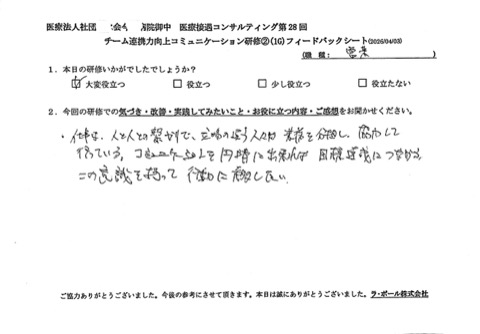 医療法人社団 会 病院御中 医療接遇コンサルティング第28回
チーム連携力向上コミュニケーション研修②(1G)フィードバックシート(2026/04/03)
(職種: 営業)
1.本日の研修いかがでしたでしょうか?
☑大変役立つ □役立つ □少し役立つ □役立たない
2.今回の研修での気づき・改善・実践してみたいこと・お役に立つ内容・ご感想をお聞かせください。
・仕事は、人と人との繋がりで、立場の違う人が 業務を分担し、協力して
行っている。コミュニケーションを円滑に出来れば 目標達成につながる
この意識を持って 行動に移したい。
ご協力ありがとうございました。今後の参考にさせて頂きます。本日は誠にありがとうございました。ラ・ポール株式会社